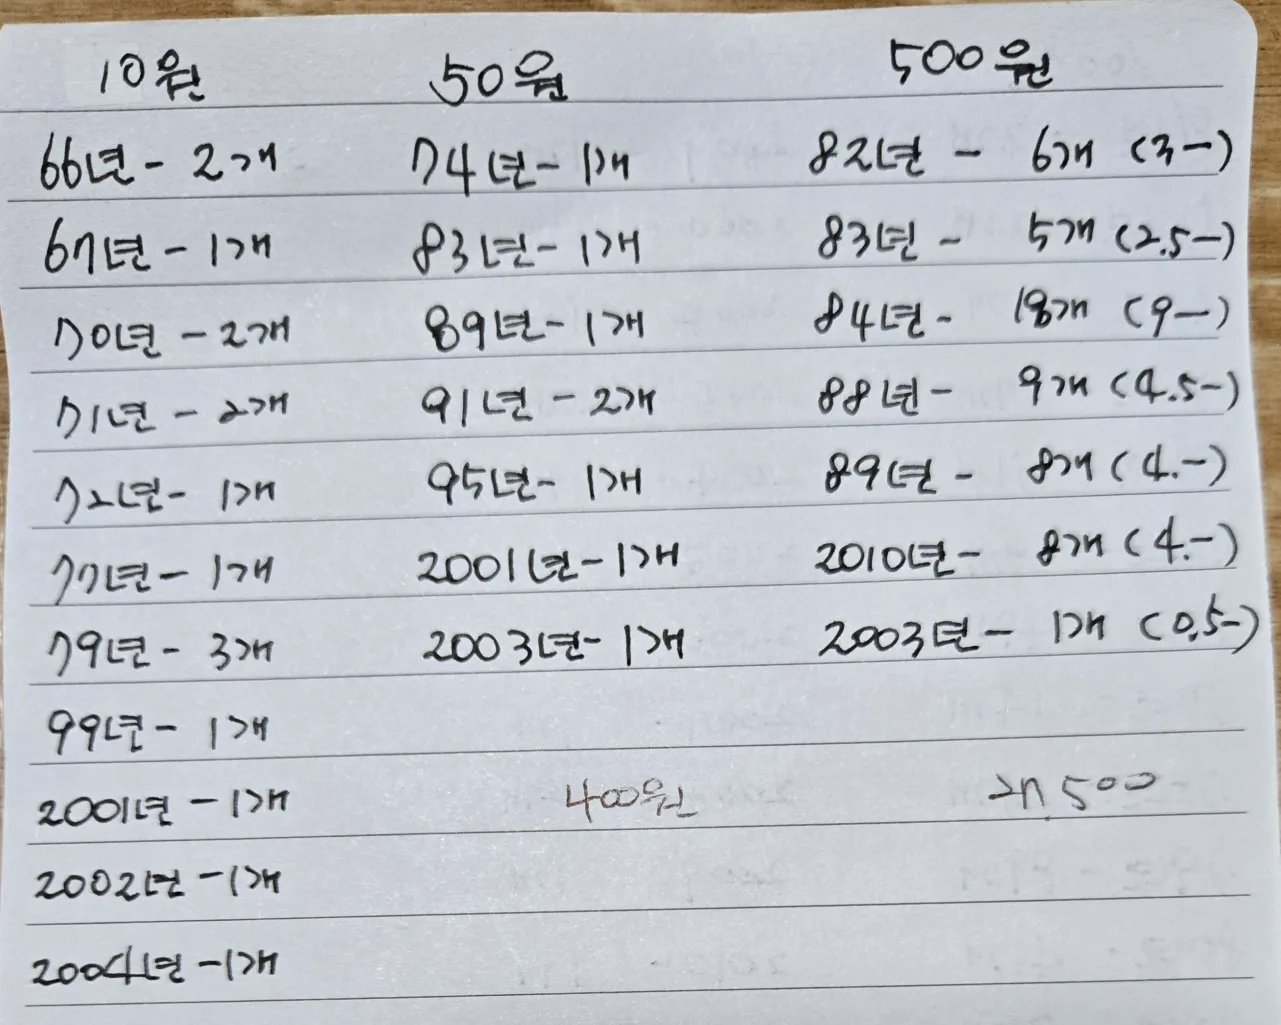 10원 50원 500원
66년- 2개 74년- 1개 82년 - 6개 (3-)
67년 - 1개 83년- 1개 83년 - 5개 (2.5-)
70년 - 2개 89년- 1개 84년- 18개 (9-)
71년 - 2개 91년 - 2개 88년- 9개 (4.5-)
72년- 1개 95년- 1개 89년 - 8개 (4.-)
77년- 1개 2001년- 1개 2010년- 8개 (4.-)
79년- 3개 2003년- 1개 2003년 - 1개 (0.5-)
99년- 1개
2001년 - 1개 400원 27,500
2002년 - 1개
2004년 - 1개